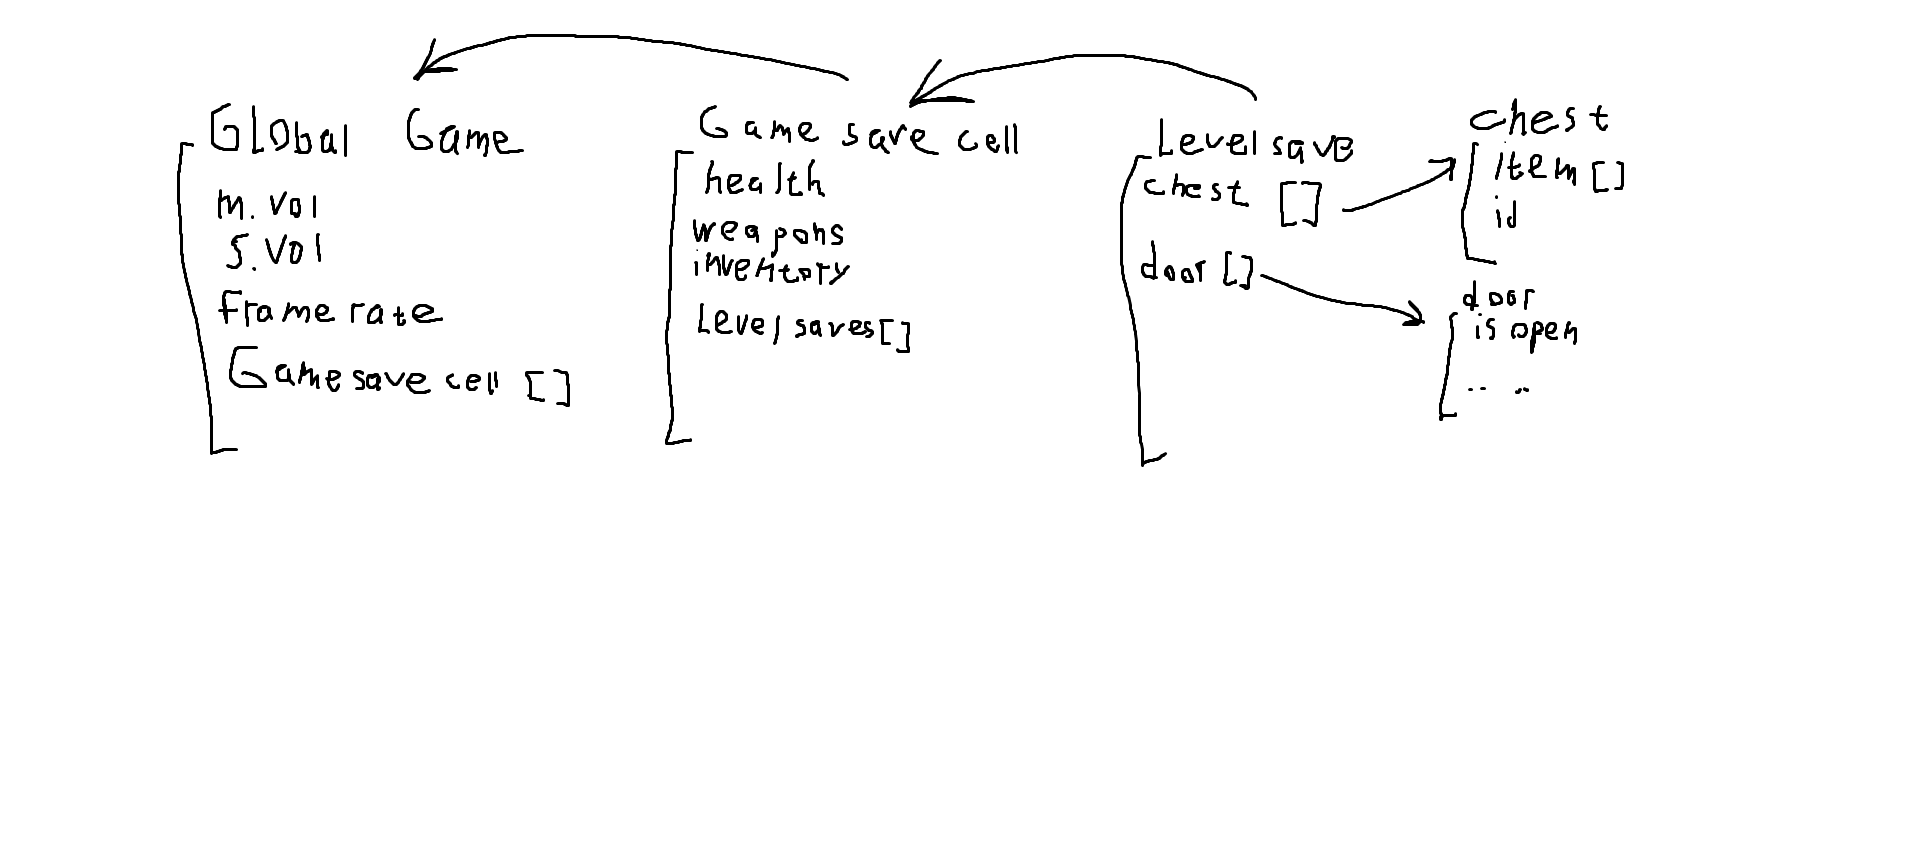 Global Game
m. vol
s. vol
frame rate
Game save cell []
Game save cell
health
weapons
inventory
Level saves []
Level save
chest []
door []
chest
item []
id
door
is open
.. ..